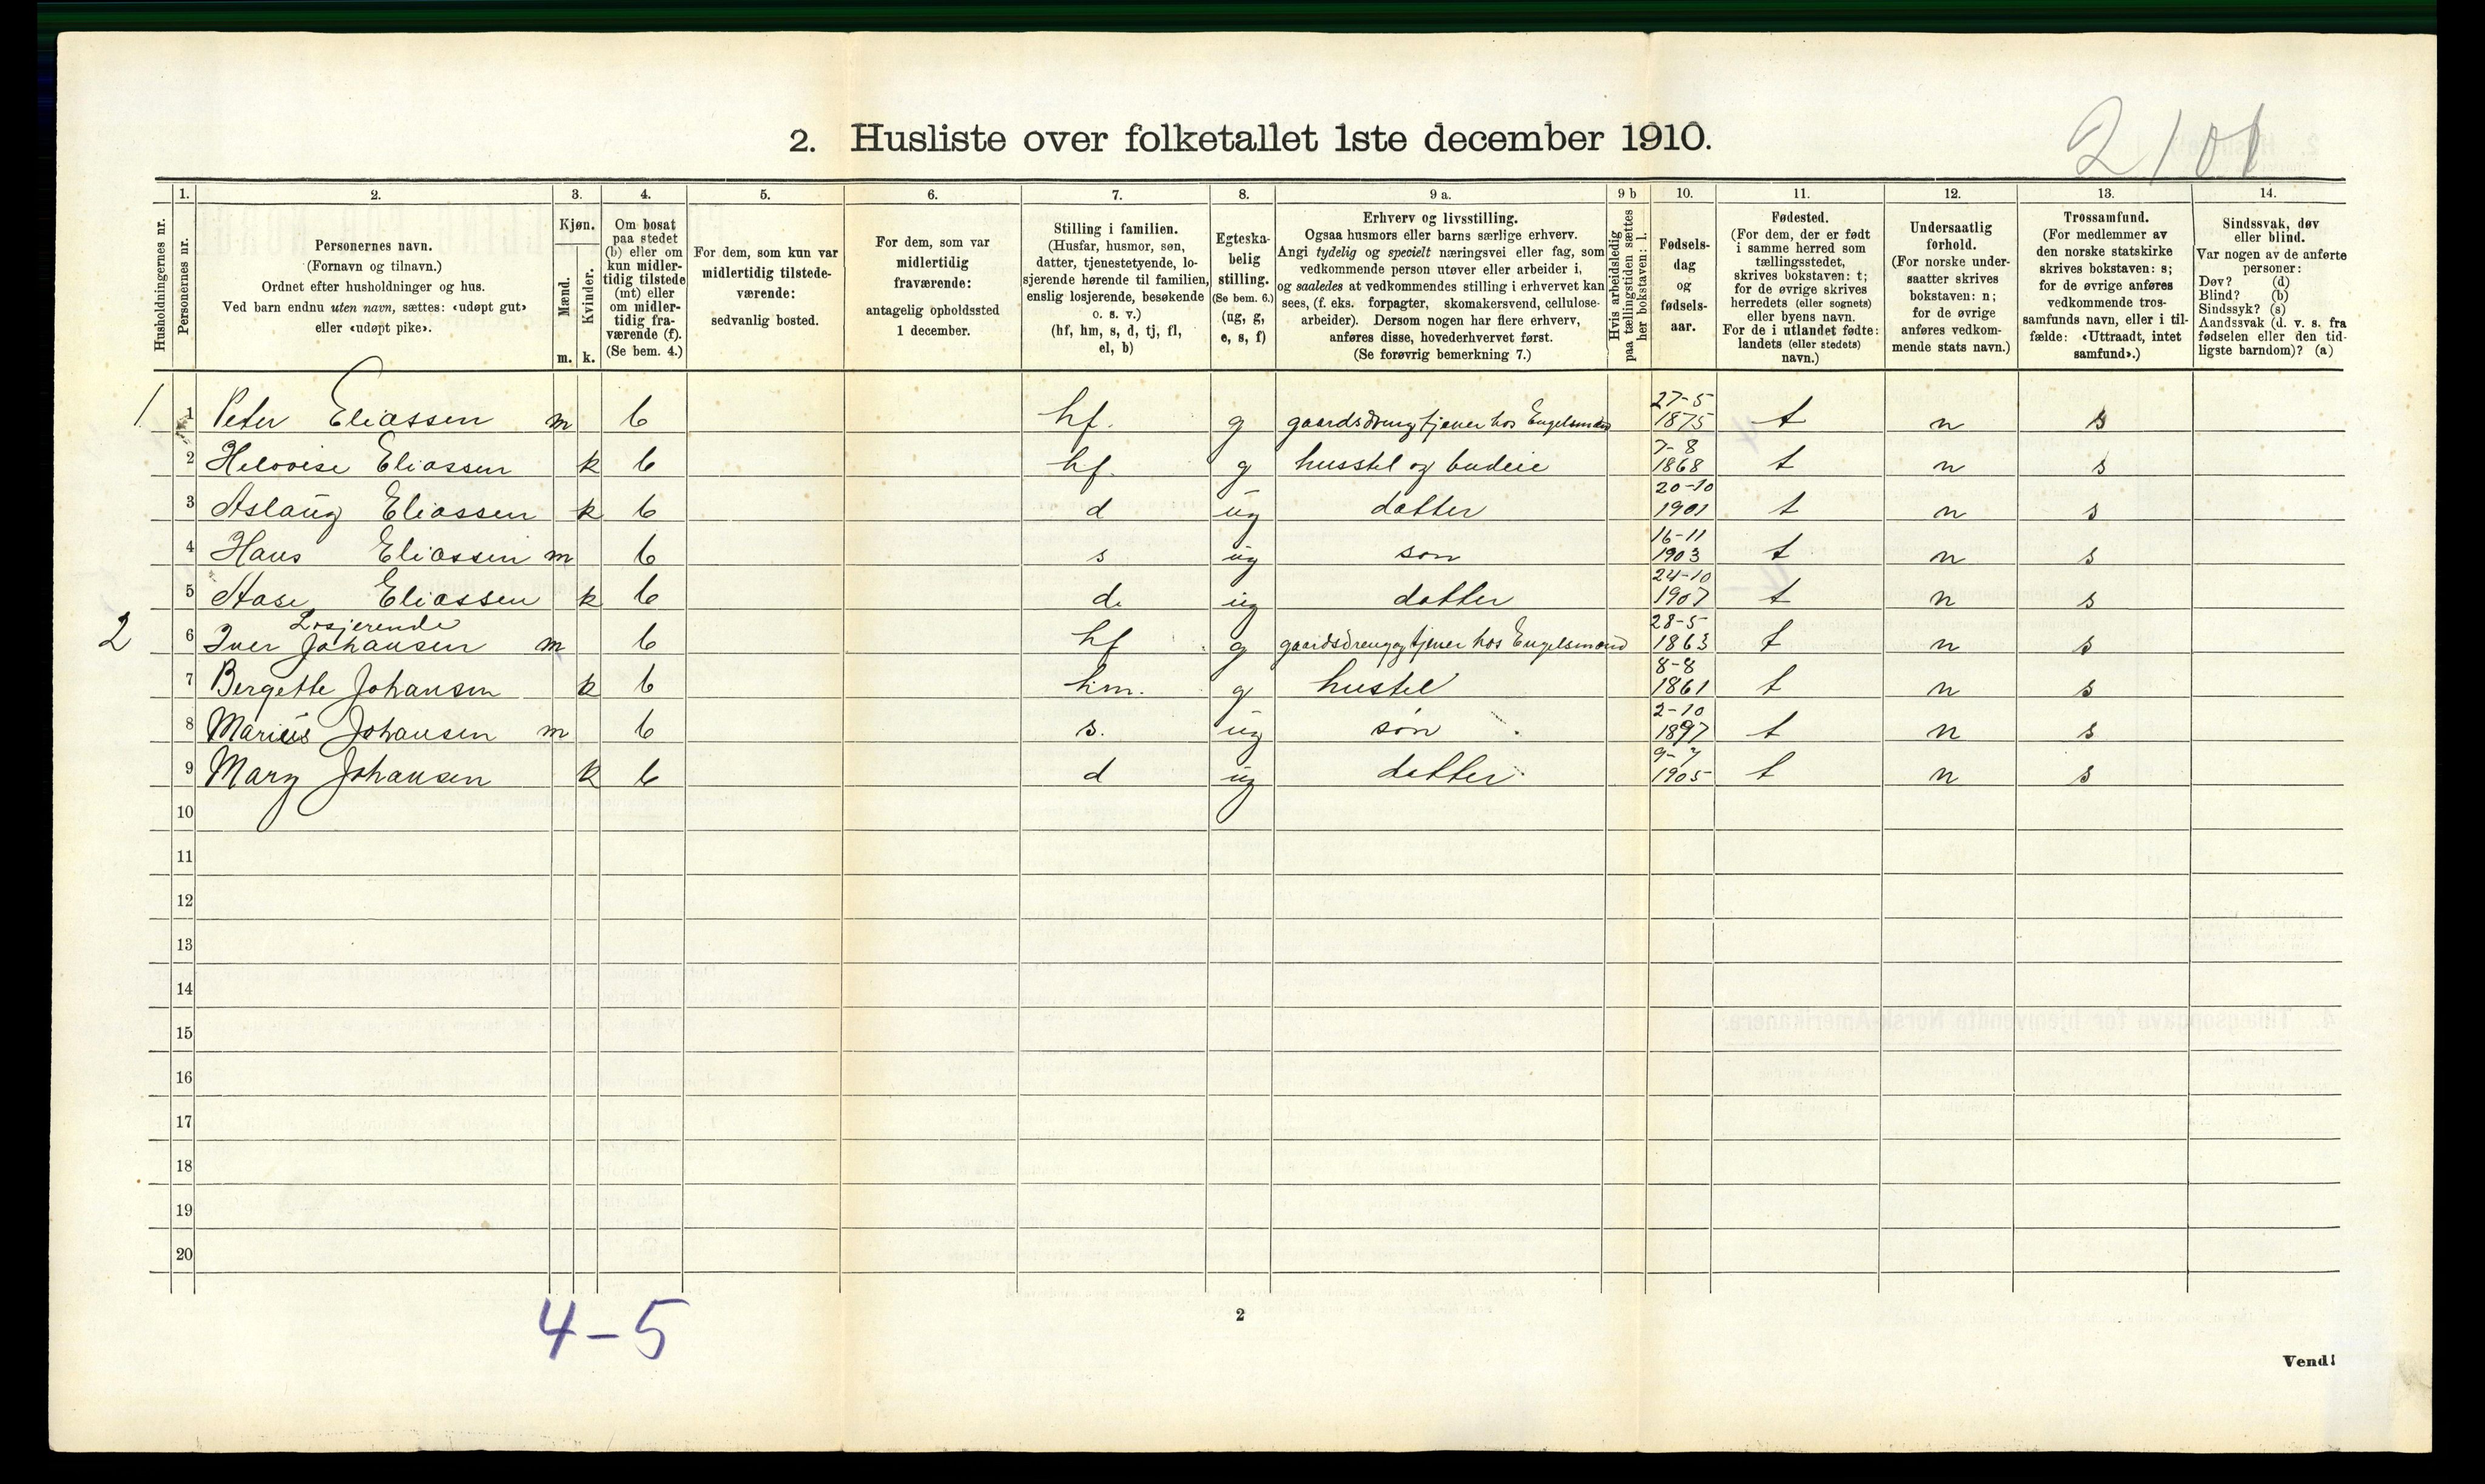 2101
2. Husliste over folketallet 1ste december 1910.
Husholdningernes nr.
1. Personernes nr.
2. Personernes navn.
(Fornavn og tilnavn.)
Ordnet efter husholdninger og hus.
Ved barn endnu uten navn, sættes: «udøpt gut»
eller «udøpt pike».
3. Kjøn.
Mænd. m.
Kvinder. k.
4. Om bosat
paa stedet
(b) eller om
kun midler-
tidig tilstede
(mt) eller
om midler-
tidig fra-
værende (f).
(Se bem. 4.)
5. For dem, som kun var
midlertidig tilstede-
værende:
sedvanlig bosted.
6. For dem, som var
midlertidig
fraværende:
antagelig opholdssted
1 december.
7. Stilling i familien.
(Husfar, husmor, søn,
datter, tjenestetyende, lo-
sjerende hørende til familien,
enslig losjerende, besøkende
o. s. v.)
(hf, hm, s, d, tj, fl,
el, b)
8. Egteska-
belig
stilling.
(Se bem. 6.)
(ug, g,
e, s, f)
9 a. Erhverv og livsstilling.
Ogsaa husmors eller barns særlige erhverv.
Angi tydelig og specielt næringsvei eller fag, som
vedkommende person utøver eller arbeider i,
og saaledes at vedkommendes stilling i erhvervet kan
sees, (f. eks. forpagter, skomakersvend, cellulose-
arbeider). Dersom nogen har flere erhverv,
anføres disse, hovederhvervet først.
(Se forøvrig bemerkning 7.)
9 b Hvis arbeidsledig
paa tællingstiden sættes
her bokstaven: l.
10. Fødsels-
dag
og
fødsels-
aar.
11. Fødested.
(For dem, der er født
i samme herred som
tællingsstedet,
skrives bokstaven: t;
for de øvrige skrives
herredets (eller sognets)
eller byens navn.
For de i utlandet fødte:
landets (eller stedets)
navn.)
12. Undersaatlig
forhold.
(For norske under-
saatter skrives
bokstaven: n;
for de øvrige
anføres vedkom-
mende stats navn.)
13. Trossamfund.
(For medlemmer av
den norske statskirke
skrives bokstaven: s;
for de øvrige anføres
vedkommende tros-
samfunds navn, eller i til-
fælde: «Uttraadt, intet
samfund».)
14. Sindssvak, døv
eller blind.
Var nogen av de anførte
personer:
Døv? (d)
Blind? (b)
Sindssyk? (s)
Aandssvak (d. v. s. fra
fødselen eller den tid-
ligste barndom)? (a)
1 1 Peter Eliassen m b hf. g gaardsdreng tjener hos Engelsmand 27-5 1875 t n s
2 Helovise Eliassen k b hf. g husstel og budeie 7-8 1868 t n s
3 Aslaug Eliassen k b d ug datter 20-10 1901 t n s
4 Hans Eliassen m b s ug søn 16-11 1903 t n s
5 Aase Eliassen k b d. ug datter 24-10 1907 t n s
Losjerende
2 6 Iver Johansen m b hf g gaardsdreng og tjener hos Engelsmand 28-5 1863 t n s
7 Bergette Johansen k b hm. g hustel 8-8 1861 t n s
8 Marius Johansen m b s. ug søn 2-10 1897 t n s
9 Mary Johansen k b d ug datter 9-7 1905 t n s
10
11
12
13
14
15
16
17
18
19
20
4-5
2
Vend!